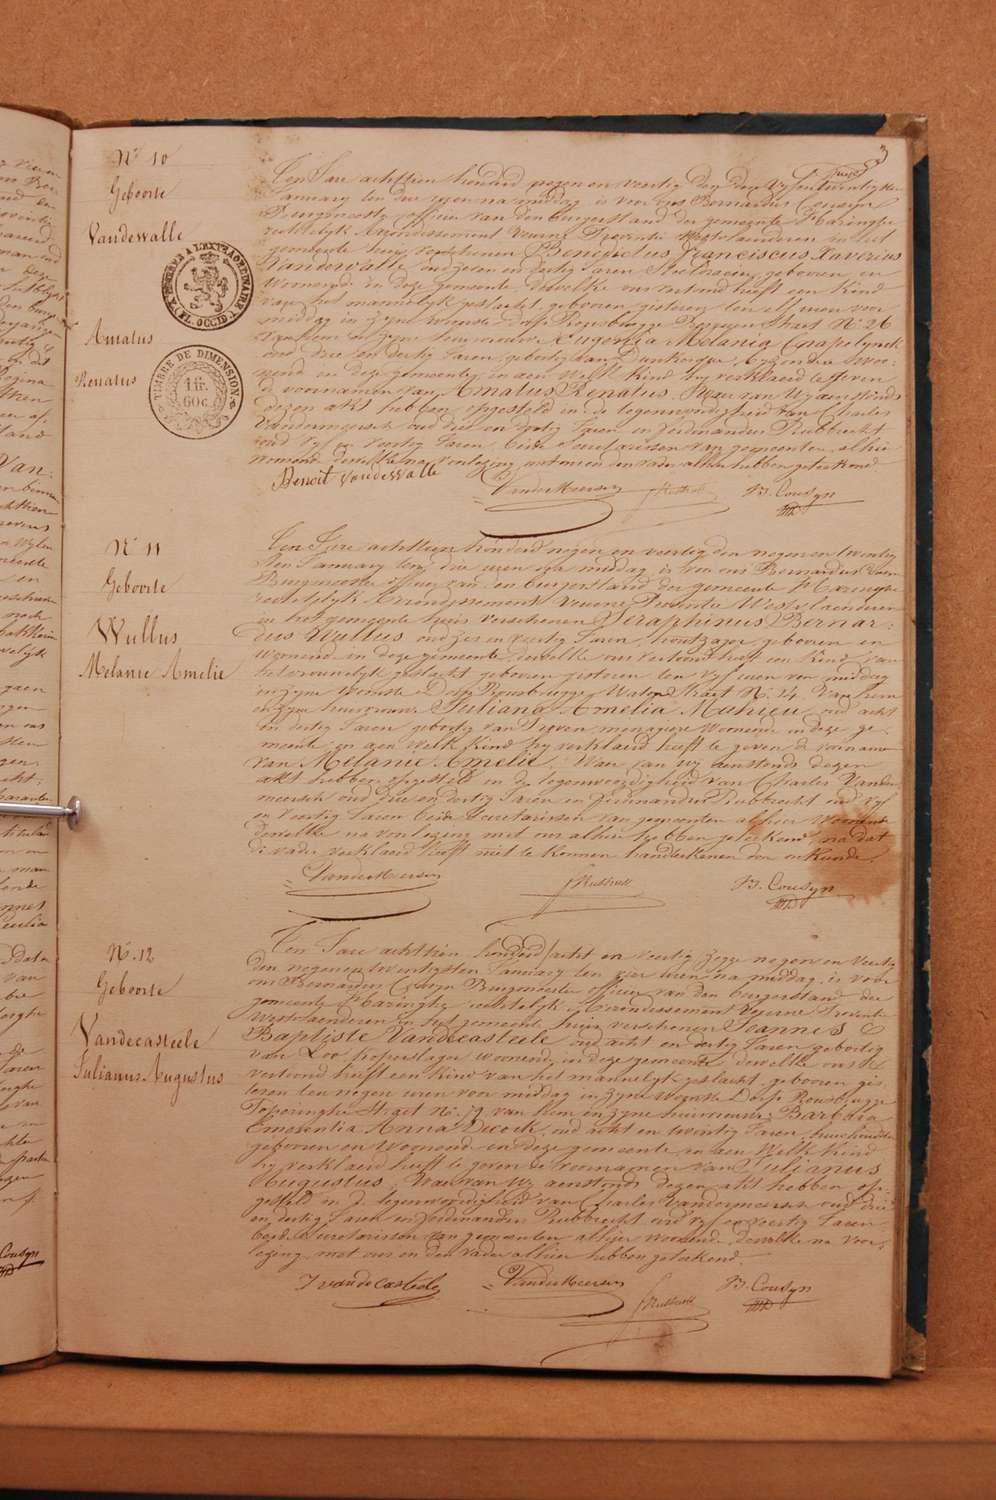 3
N.º 10
Geboorte
Vandewalle
Amatus
Renatus
TIMBRE A L'EXTRAORDINAIRE
(FL. OCCID.)
TIMBRE DE DIMENSION
1 fr.
60 c.
Ten Jare achttien honderd negen en veertig den
January ten dry uren na middag is voor ons Bernardus Cousyn
Burgmeester officier van den burgerstand der gemeente Haringhe
rechtelyk Arrondissement Veurne Proventie Westvlaenderen in het
gemeente huys verschenen Benedictus Franciscus Xaverius
Vandewalle oud zeven en dertig Jaren geboren en
Woonend in deze gemeente dewelke ons vertoond heeft een Kind
van het mannelyk geslacht geboren gisteren ten elf uren voor
middag in zyne Woonste Dorp Rousbrugge Straet N.º 26
van hem en zyne huisvrouw Eugenia Melania Cnapelynck
oud drie en dertig Jaren geboortig van Dunkerque byzondre Woo-
nend in deze gemeente, en aen Welk Kind hy verklaerd te geven
de voornamen van Amatus Renatus, Waer van Wy aenstonds
dezen akt hebben opgesteld in de tegenwoordigheid van Charles
Vandermeersch oud drie en dertig Jaren en Ferdinandus Rubbrecht
oud vyf en veertig Jaren beide Secretarissen van gemeenten alhier
woonend dewelke na voorlezing met ons en den vader alhier hebben geteekend
Benoit Vandewalle
VanderMeersch
F Rubbrecht
B. Cousyn
N.º 11
Geboorte
Wullus
Melanie Amelie
Ten Jare achttien honderd negen en veertig den negen en twentig
sten January ten drie uren na middag is voor ons Bernardus Cousyn
Burgmeester officier van den burgerstand der gemeente Haringhe
rechtelyk Arrondissement Veurne Provintie Westvlaenderen
in het gemeente huis verschenen Seraphinus Bernar-
dus Wullus oud zes en veertig Jaren, houtzager geboren en
Woonend in deze gemeente, dewelke ons vertoond heeft een Kind van
het vrouwelyk geslacht geboren gisteren ten vyf uren voor middag
in zyne Woonste Dorp Rousbrugge Water Straet N.º 24 Van hem
en zyne huisvrouw Juliana Amelia Mahieu oud acht
en dertig Jaren geboortig van menagiere Woonende in deze ge-
meente, en aen welk Kind hy verklaerd heeft te geven de voornamen
van Melanie Amelie, Waer van wy aenstonds dezen
akt hebben opgesteld in de tegenwoordigheid van Charles Vander
meersch oud drie en dertig Jaren en Ferdinandus Rubbrecht oud vyf
en veertig Jaren beide Secretarissen van gemeenten alhier Woonend
dewelke na voorlezing met ons alhier hebben geteekend, na dat
de vader verklaerd heeft niet te kennen handteekenen door onkunde.
VanderMeersch
F Rubbrecht
B. Cousyn
N.º 12
Geboorte
Vandecasteele
Julianus Augustus
Ten Jare achttien honderd acht en veertig Zegge negen en veertig
den negen en twentigsten January ten vier uren na middag is voor
ons Bernardus Cousyn Burgmeester officier van den burgerstand der
gemeente Haringhe rechtelyk Arrondissement Veurne Provintie
Westvlaenderen in het gemeente huis verschenen Joannes
Baptiste Vandecasteele oud acht en dertig Jaren geboortig
van Loo koperslager woonend in deze gemeente, dewelke ons
vertoond heeft een Kind van het mannelyk geslacht, geboren gis-
teren ten negen uren voor middag in zyne Woonste Dorp Rousbrugge
Poperinghe Straet N.º 79 van hem en zyne huisvrouw Barbara
Emerentia Anna Decock, oud acht en twentig Jaren
geboren en Woonend in deze gemeente, en aen Welk Kind
hy verklaerd heeft te geven de voornamen van Julianus
Augustus, Waer van Wy aenstonds dezen akt hebben op-
gesteld in de tegenwoordigheid van Charles Vandermeersch oud drie
en dertig Jaren en Ferdinandus Rubbrecht oud vyf en veertig Jaren
beide Secretarissen van gemeenten alhier woonend, dewelke na voor-
lezing met ons en den vader alhier hebben geteekend.
J vandecasteele
VanderMeersch
F Rubbrecht
B. Cousyn